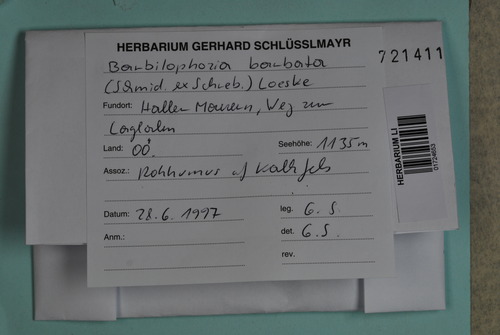 HERBARIUM GERHARD SCHLÜSSLMAYR
Barbilophozia barbata
(Schmid. ex Schreb.) Loeske
Fundort: Haller Mauern, Weg zur
Land: OÖ. Seehöhe: 1135 m
Assoz.: Rohhumus auf Kalkfels
Datum: 28.6.1997 leg. G. S.
Anm.: det. G. S.
rev.
721411
HERBARIUM LI